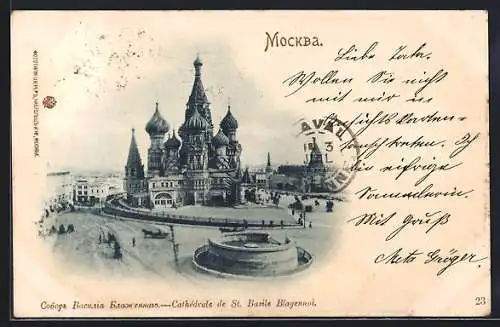 Москва.
Liebe Tata.
Wollen Sie nicht
mit mir in
Ansichtskarten-
tausch treten. Ich
bin eifrige
Sammlerin.
Mit Gruß
Meta Gröger
23
Соборъ Василія Блаженнаго.—Cathédrale de St. Basile Blagennoi.